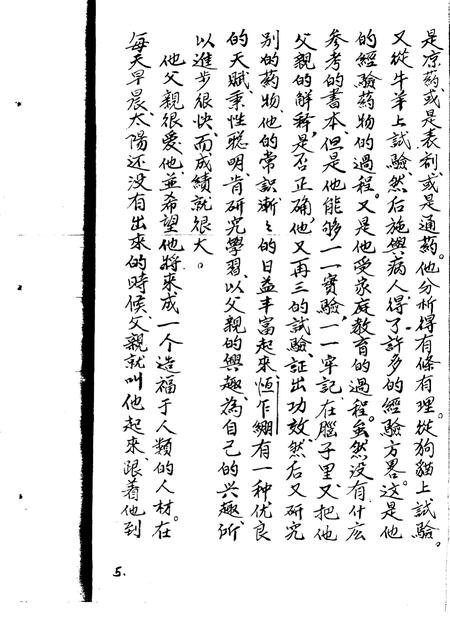 是凉药,或是表剂,或是通药。他分析得有條有理。從狗貓上試驗。
又從牛羊上試驗、然后施與病人、得了許多的經驗方畧。这是他
的經驗药物的過程。又是他受家庭教育的過程。虽然没有什広
参考的書本、但是他能够一一實驗,一一牢記、在腦子里又把他
父親的解释,是否正确,他又再三的試驗、証出功效、然后又研究
别的药物、他的常識漸々的日益丰富起來、恒乍绷有一种优良
的天賦、秉性聪明、肯研究學習、以父親的興趣、為自己的兴趣、所
以進步很快、而成績就很大。
他父親很爱他、並希望他將來成一个造福于人類的人材。在
每天早晨、太陽还没有出來的時候、父親就叫他起來、跟着他到
5.